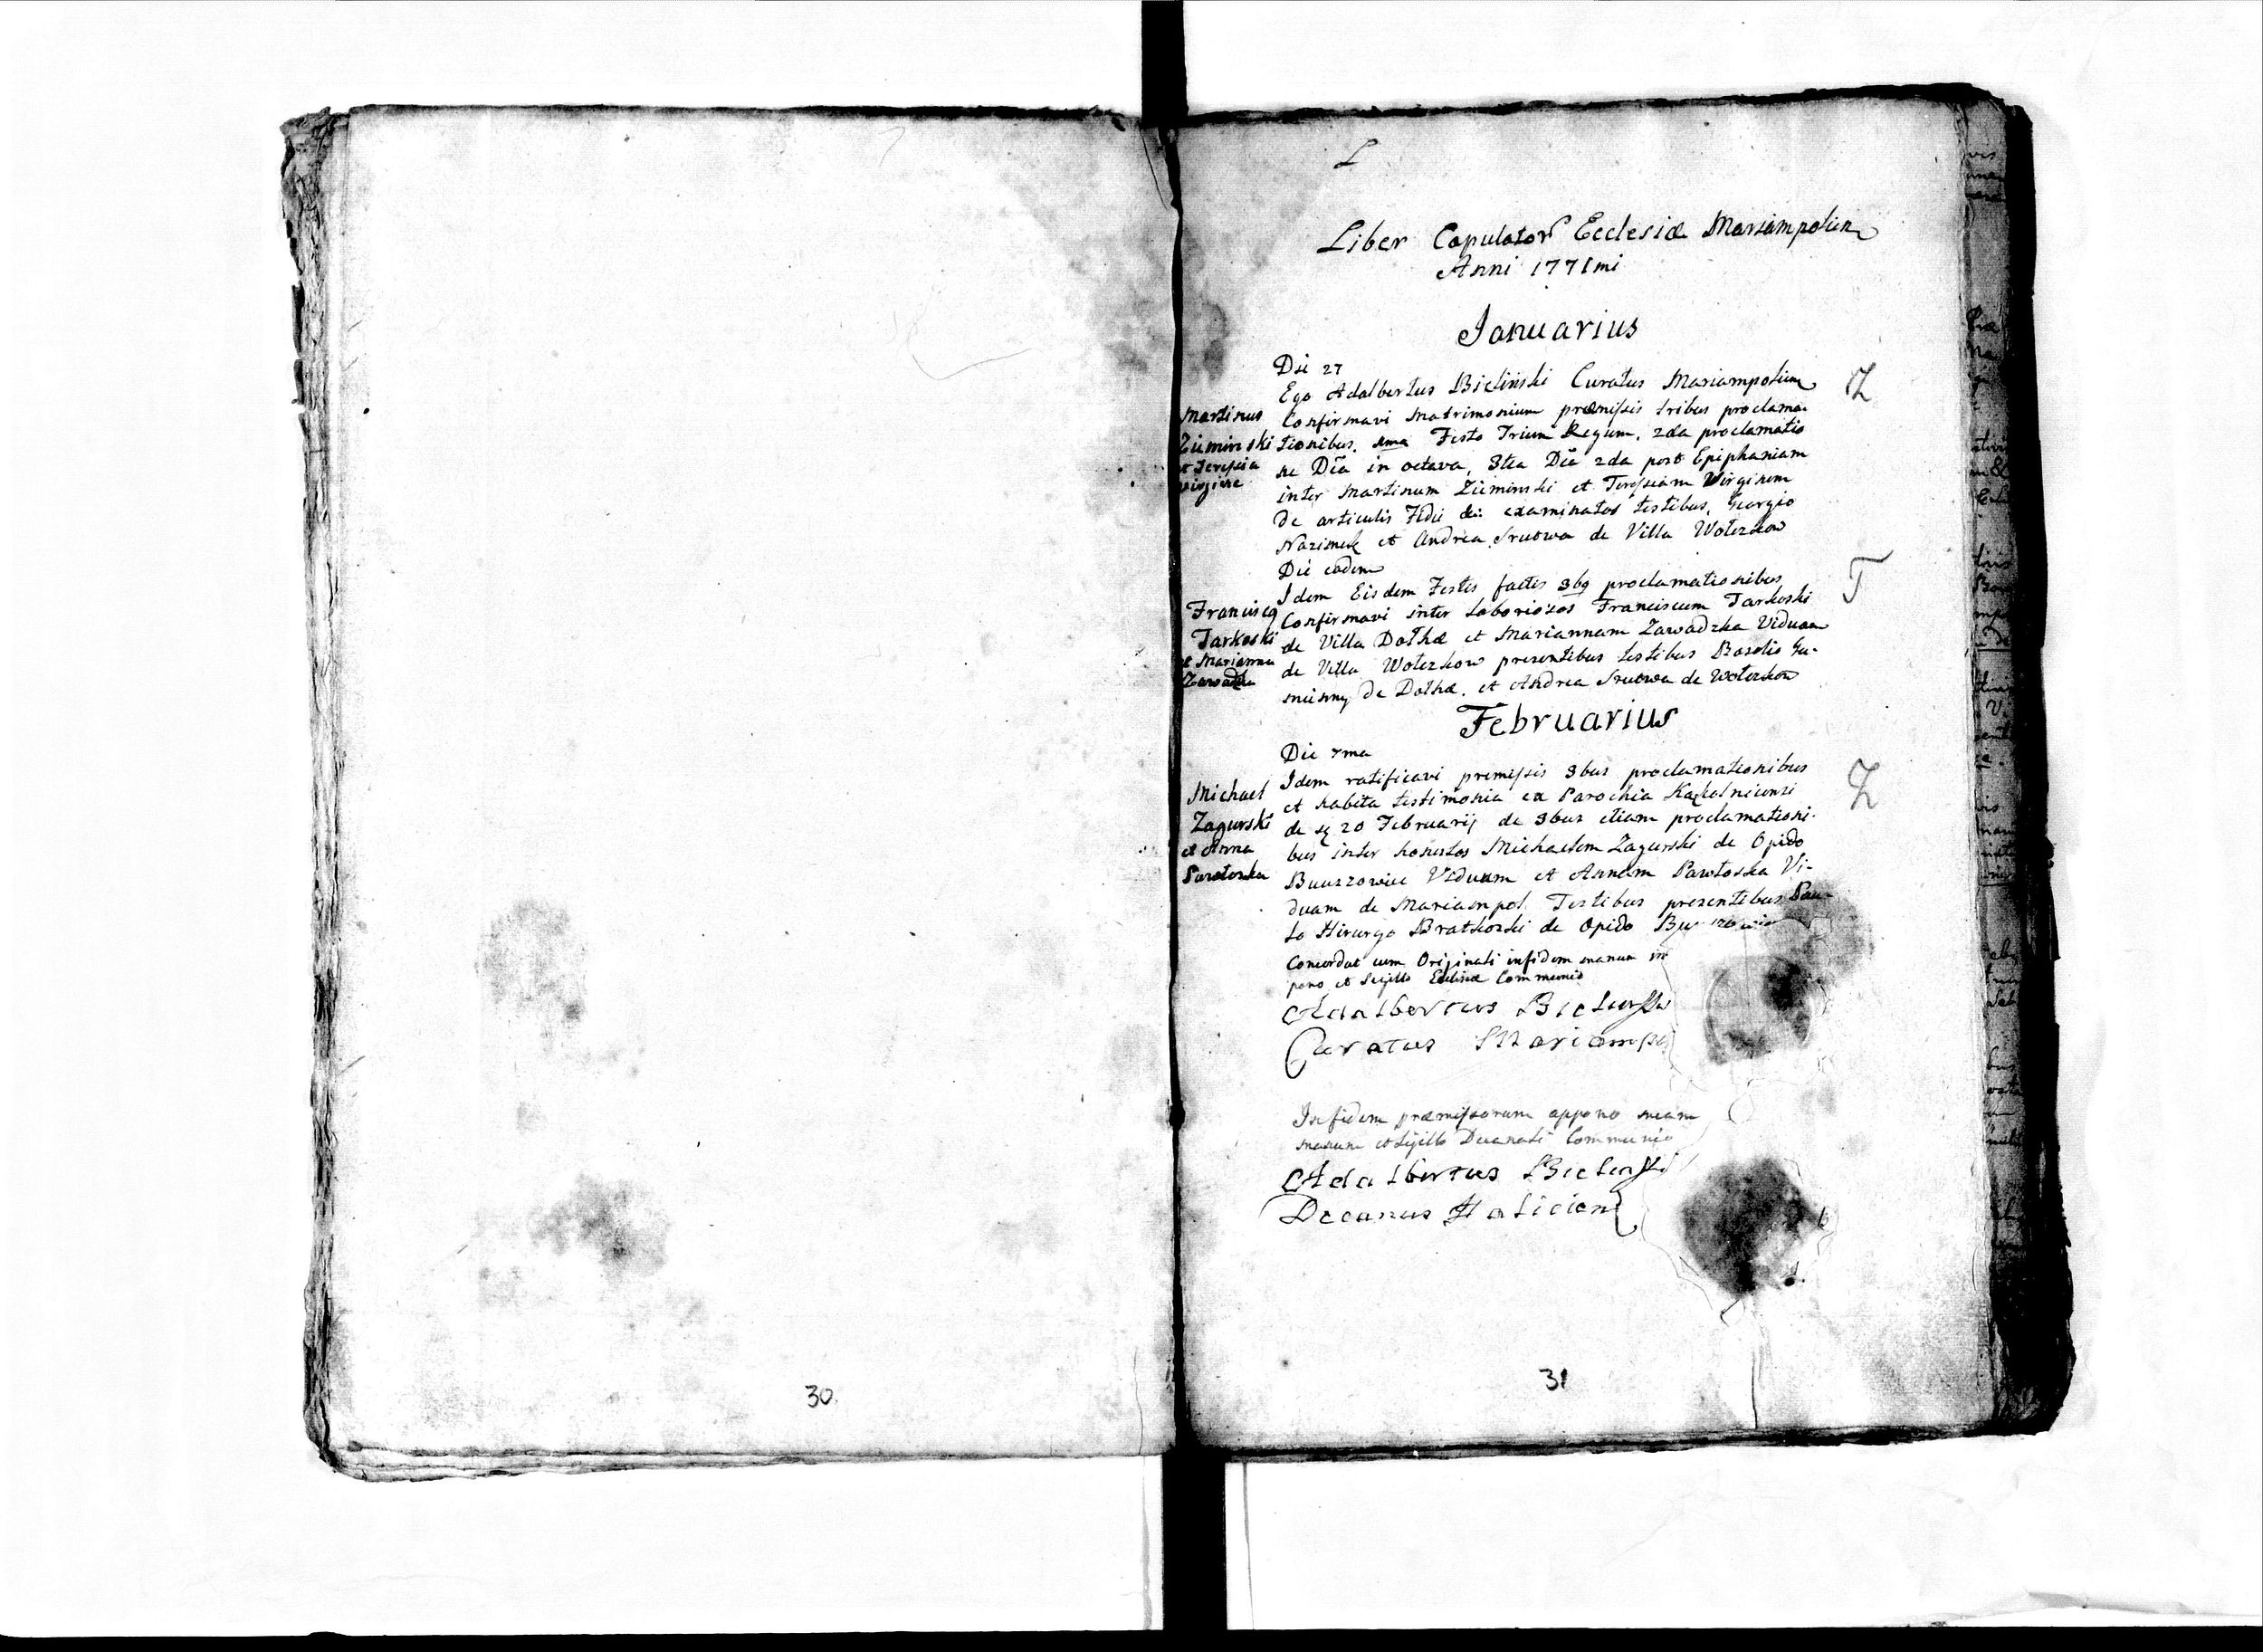 L
Liber Copulator Ecclesiæ Mariampolien
Anni 1771mi
Januarius
Die 27
Ego Adalbertus Bieliński Curatus Mariampolien
Confirmavi Matrimonium præmissis tribus proclama-
tionibus. 1ma Festo Trium Regum. 2da proclamatio
ne Dia in octava, 3tia Dia 2da post Epiphaniam
inter Martinum Ziminski et Teressiam Virginem
de articulis Fidei examinatos testibus, Georgio
et Andrea Srutwa de Villa Wolczkow
Martinus
Ziminski
et Teressia
virgine
Z
Die eadem
Idem Eisdem Festis factis 3bq proclamationibus
Confirmavi inter Laboriosos Franciscum Tarkoski
de Villa Dolhæ et Mariannam Zawadzka Viduam
de Villa Wolczkow presentibus testibus Basilio Gu-
de Dolhæ. et Andrea Srutwa de Wolczkow
Franciscq
Tarkoski
et Marianna
Zawadzka
T
Februarius
Die 7ma
Idem ratificavi premissis 3bus proclamationibus
et habita testimonia ex Parochia
de 20 Februarij de 3bus etiam proclamationi-
bus inter honestos Michaelem Zagurski de Opido
Viduum et Annam Pawloska Vi-
duam de Mariampol Testibus presentibus Pau-
lo Hirurgo Bratkoski de Opido
Michael
Zagurski
et Anna
Pawloska
Z
Concordat cum Originali infidem manum im
pono et Sigillo Eclisiæ Communio
Adalbertus Bielinski
Curatus Mariampol
Infidem præmissorum appono meam
manum et Sigillo Decanali Communio
Adalbertus Bielinski
Decanus Halicien
30
31